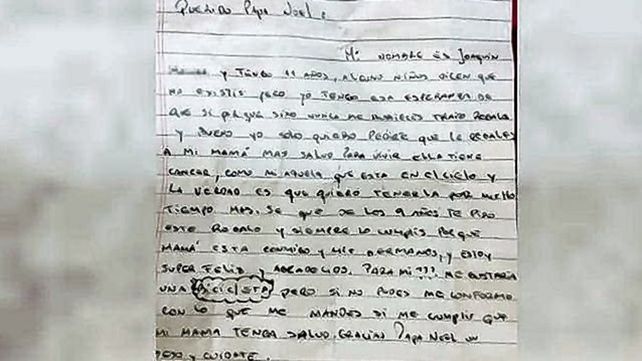 QUERIDO PAPA NOEL:
Mi NOMBRE ES JOAQUÍN
Y TENGO 11 AÑOS, ALGUNO NIÑOS DICEN QUE
NO EXISTIS PERO YO TENGO ESA ESPERANZA DE
QUE SI PORQUE SINO NUNCA ME HUBIECES TRAIDO REGALO
Y BUENO YO SOLO QUIERO PEDIRTE QUE LE REGALES
A MI MAMÁ MAS SALUD PARA VIVIR ELLA TIENE
CANCER, COMO MI ABUELA QUE ESTA EN EL CIELO Y
LA VERDAD ES QUE QUIERO TENERLA POR MUCHO
TIEMPO MAS. SE QUE DE LOS 9 AÑOS TE PIDO
ESTE REGALO Y SIEMPRE LO CUMPLIS PORQUE
MAMÁ ESTA CONMIGO Y MIS HERMANOS, Y ESTOY
SUPER FELIS Y AGRADECIOS. PARA MI ??? ME GUSTARIA
UNA BICICLETA PERO SI NO PUDES ME CONFORMO
CON LO QUE ME MANDES SI ME CUMPLIS QUE
MI MAMA TENGA SALUD. GRACIAS PAPA NOEL UN
BESO Y CUIDATE.